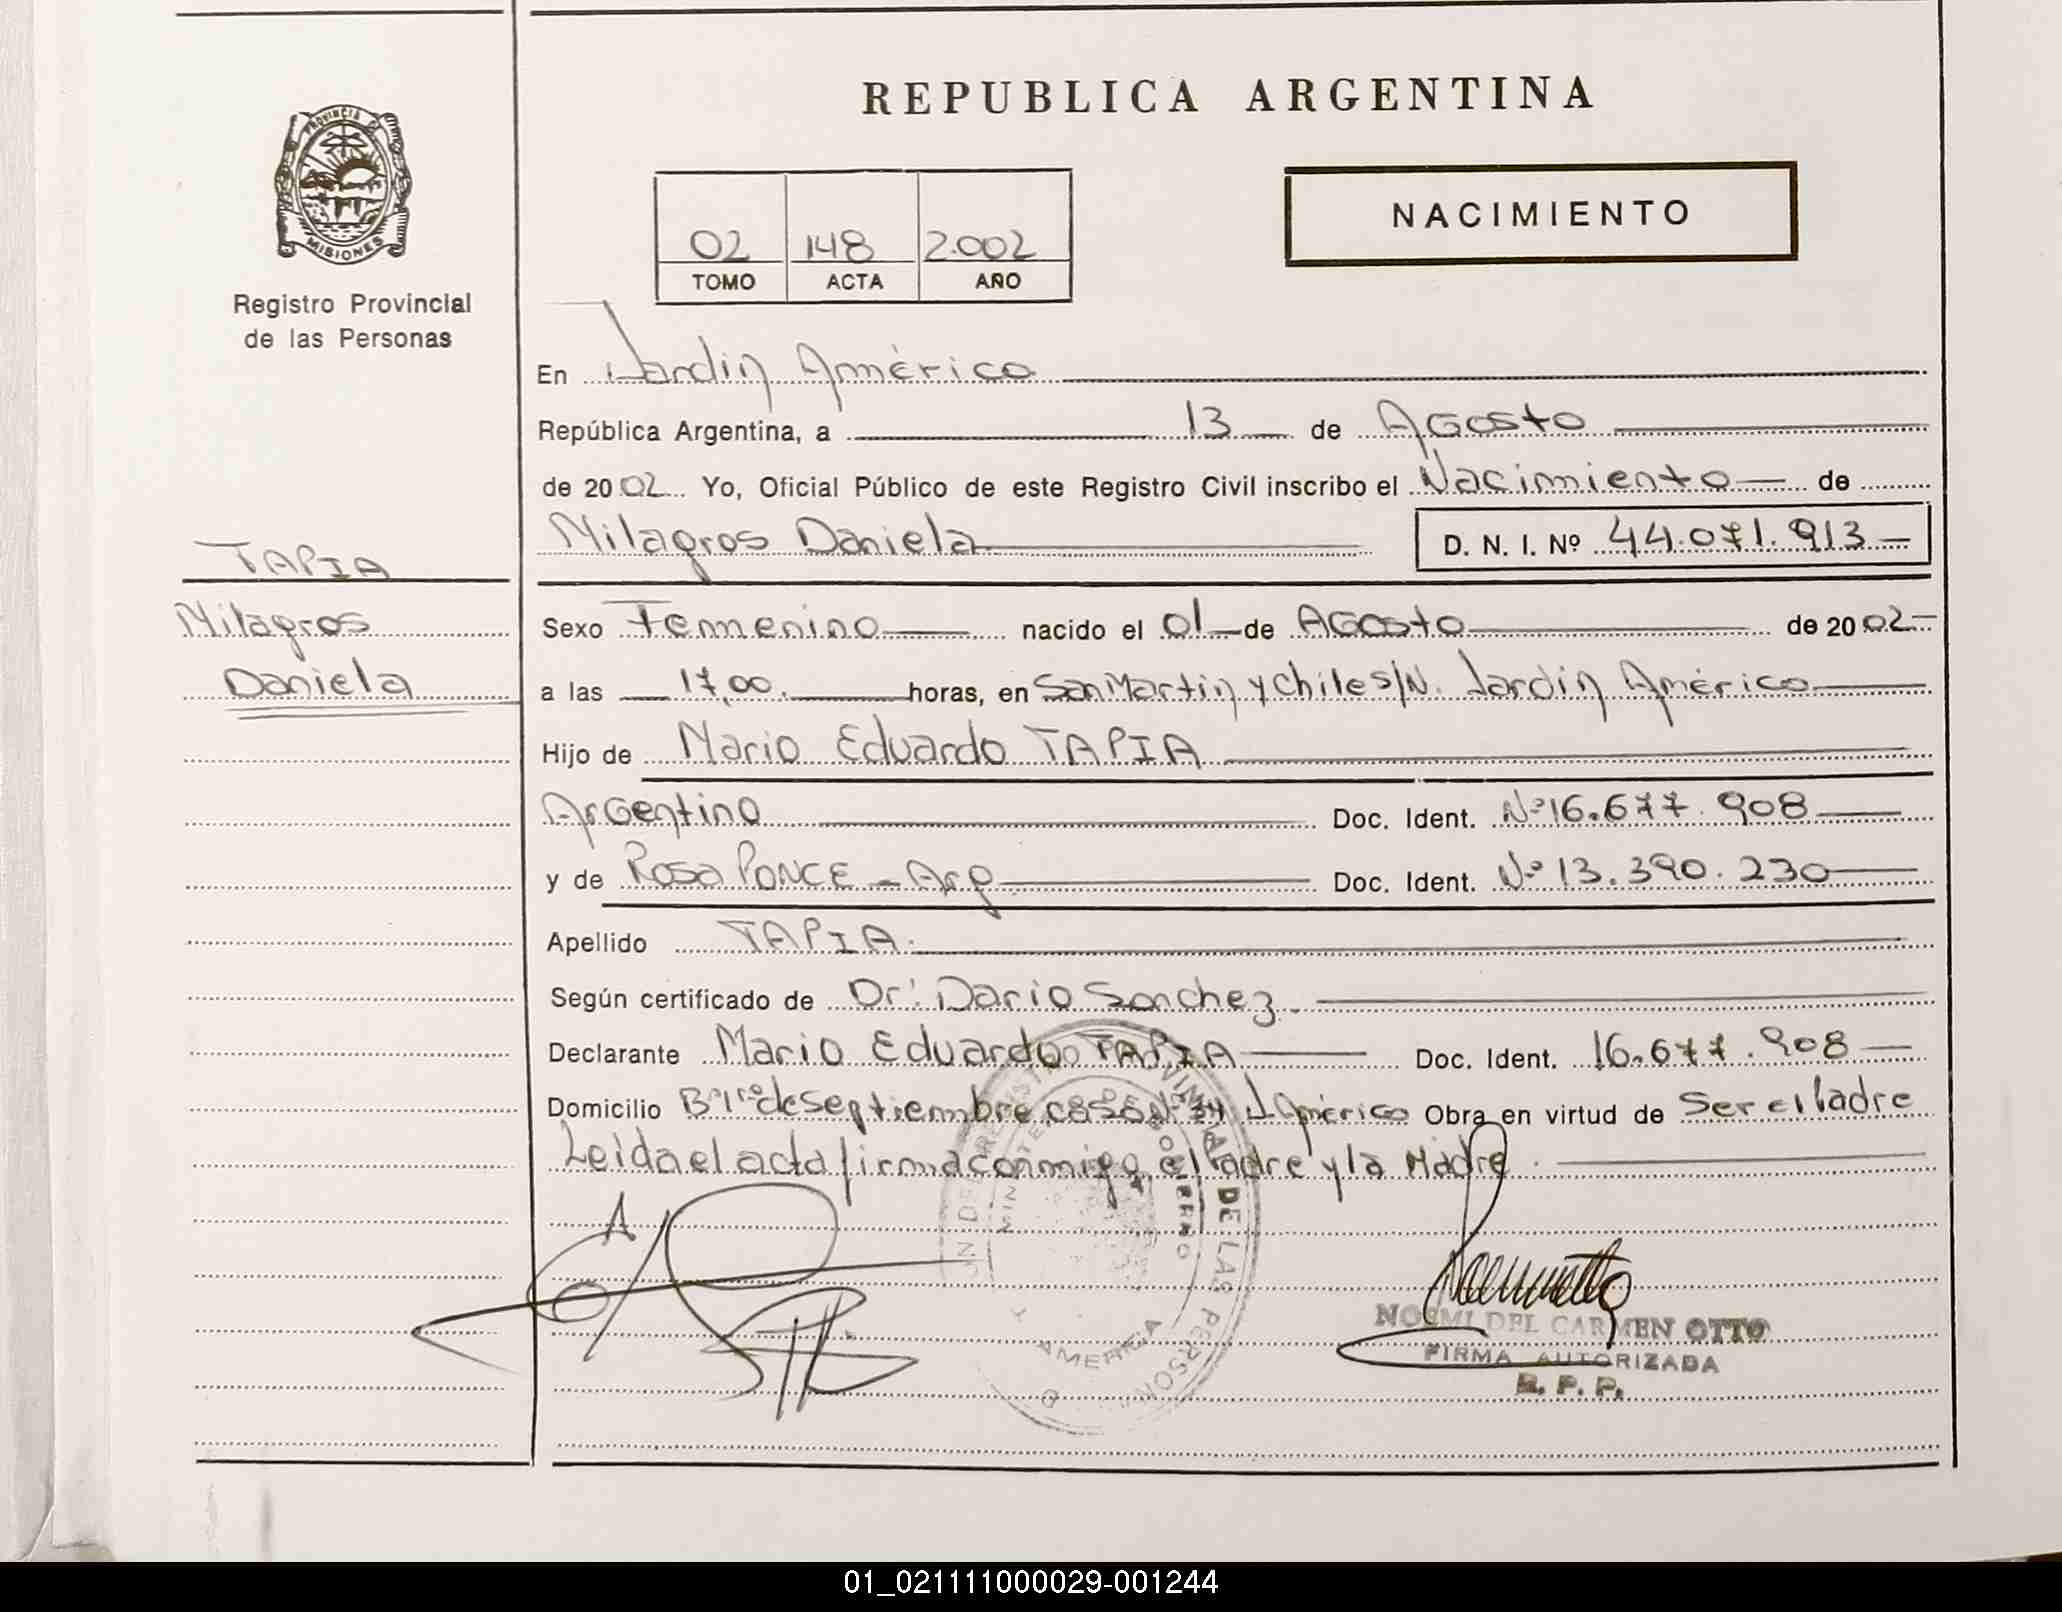 REPUBLICA ARGENTINA
PROVINCIA DE
MISIONES
Registro Provincial
de las Personas
02 148 2.002
TOMO ACTA AÑO
NACIMIENTO
En Jardin América
República Argentina, a 13 de Agosto
de 2002 Yo, Oficial Público de este Registro Civil inscribo el Nacimiento de
Milagros Daniela D. N. I. Nº 44.071.913
TAPIA
Milagros
Daniela
Sexo Femenino nacido el 01 de Agosto de 2002
a las 17,00. horas, en San Martin y Chile S/N. Jardin América
Hijo de Mario Eduardo TAPIA
Argentino Doc. Ident. Nº 16.677.908
y de Rosa PONCE - Arg Doc. Ident. Nº 13.390.230
Apellido TAPIA.
Según certificado de Dr. Dario Sanchez.
Declarante Mario Eduardo TAPIA Doc. Ident. 16.677.908
Domicilio Bº 1ro de Septiembre casa Nº 34 J. América Obra en virtud de Ser el Padre
Leida el acta firma conmigo el Padre y la Madre.
DE LAS PERSON
AMERICA
NOEMI DEL CARMEN OTTO
FIRMA AUTORIZADA
R. P. P.
01_021111000029-001244